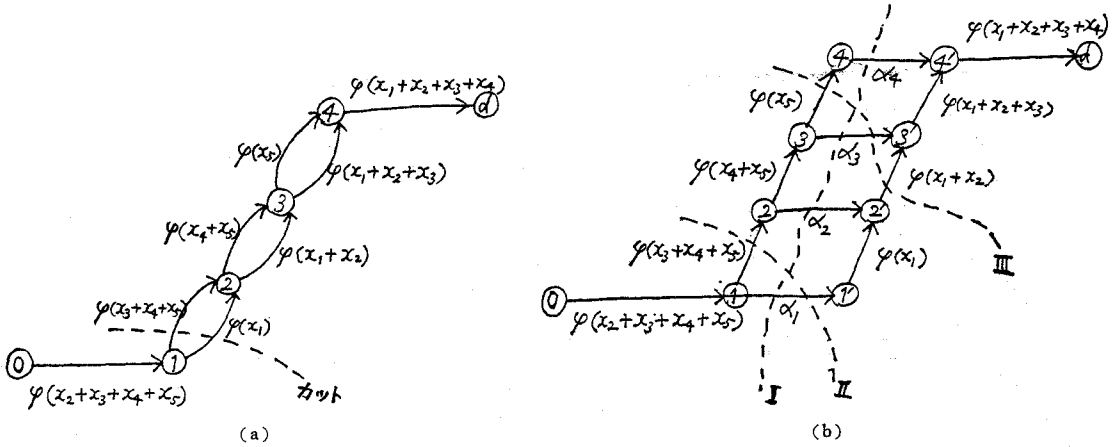 φ(x₁+x₂+x₃+x₄)
4
d
φ(x₅)
φ(x₁+x₂+x₃)
3
φ(x₄+x₅)
φ(x₁+x₂)
2
φ(x₃+x₄+x₅)
φ(x₁)
0
1
φ(x₂+x₃+x₄+x₅)
カット
(a)
φ(x₁+x₂+x₃+x₄)
4
4'
d
α₄
φ(x₅)
φ(x₁+x₂+x₃)
3
3'
α₃
φ(x₄+x₅)
φ(x₁+x₂)
2
2'
α₂
III
φ(x₃+x₄+x₅)
φ(x₁)
0
1
1'
α₁
φ(x₂+x₃+x₄+x₅)
I
II
(b)